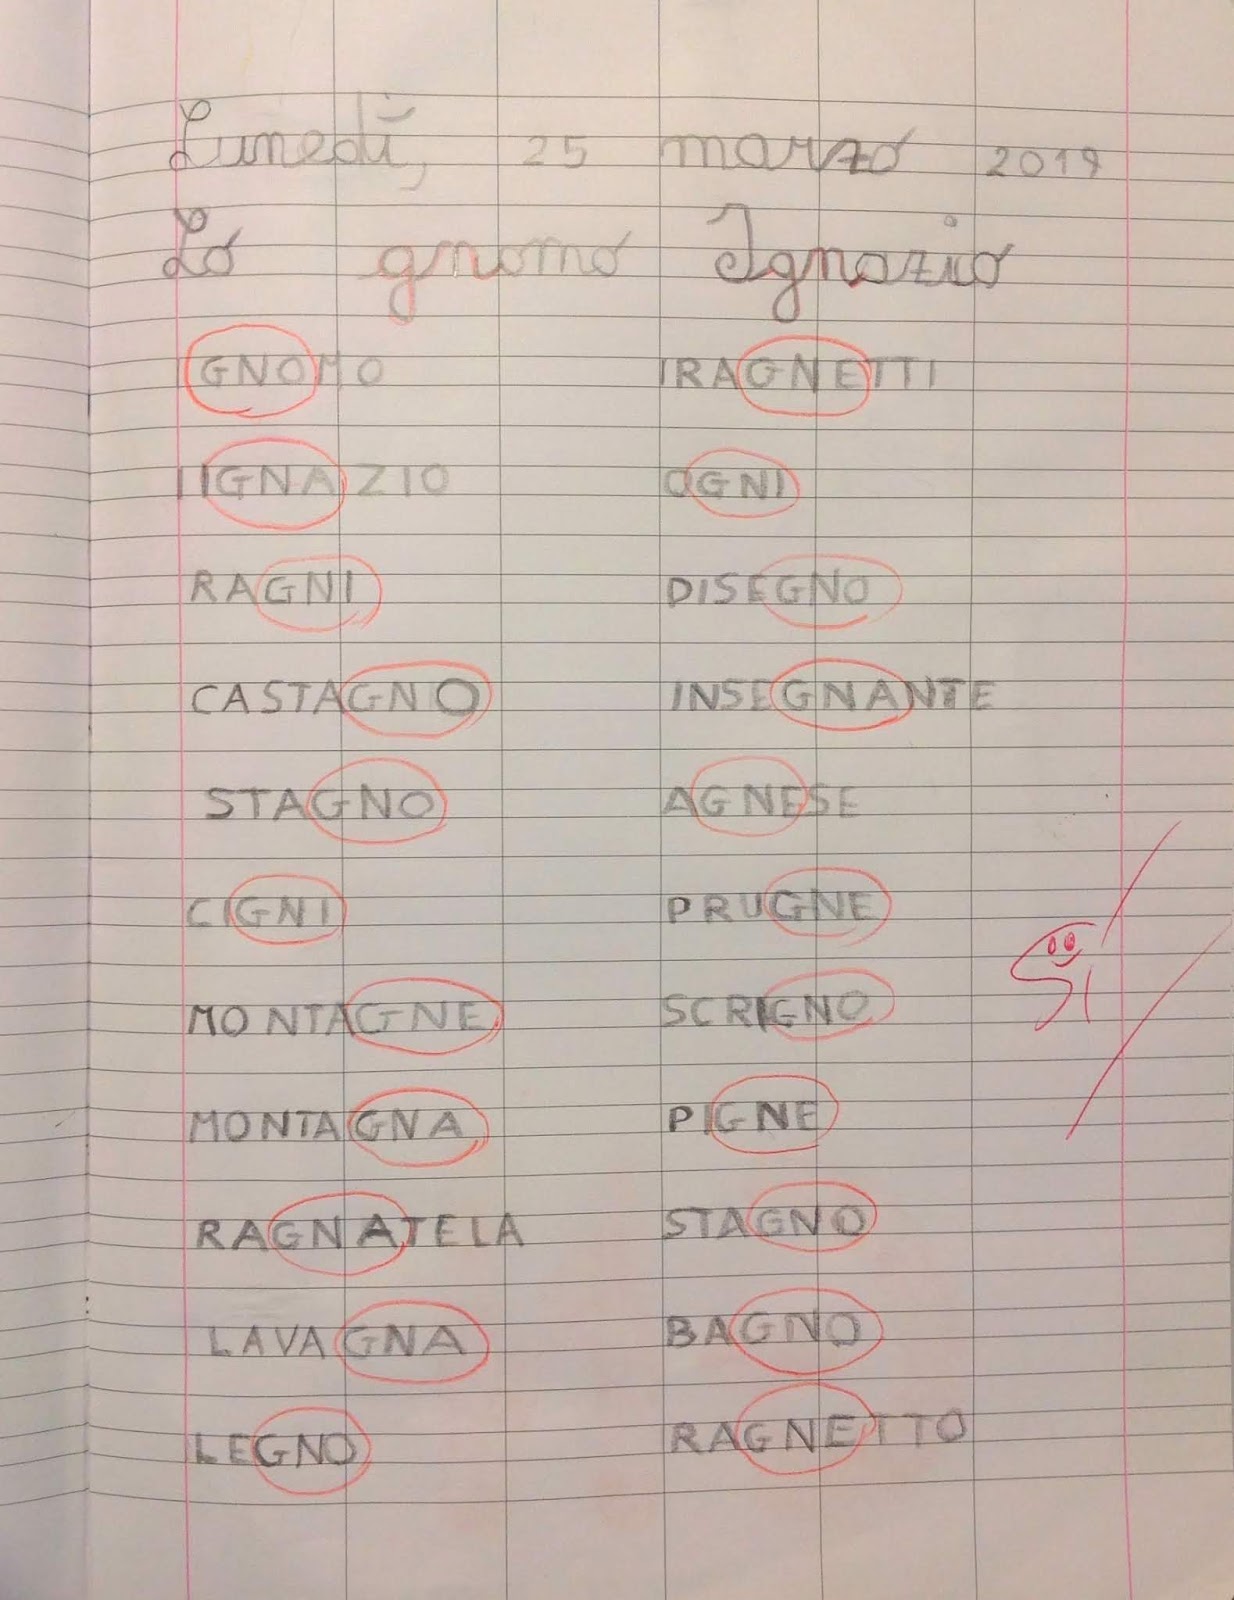 Lunedì, 25 marzo 2019
Lo gnomo Ignazio
GNOMO
IGNAZIO
RAGNI
CASTAGNO
STAGNO
CIGNI
MONTAGNE
MONTAGNA
RAGNATELA
LAVAGNA
LEGNO
I RAGNETTI
OGNI
DISEGNO
INSEGNANTE
AGNESE
PRUGNE
SCRIGNO
PIGNE
STAGNO
BAGNO
RAGNETTO
Sì